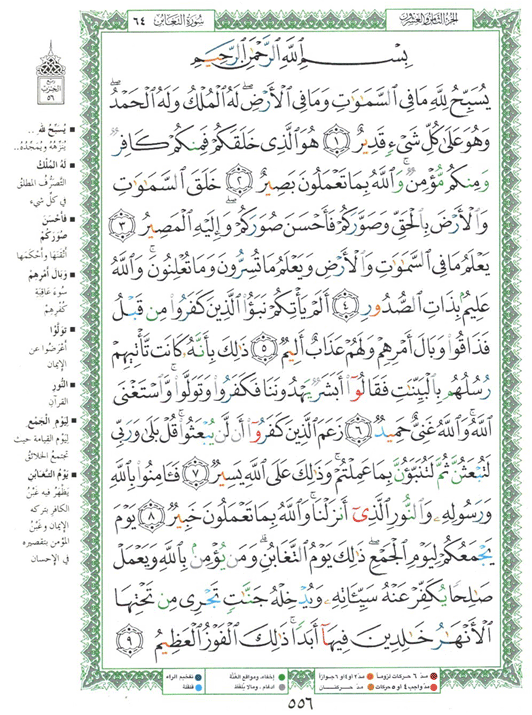 سُورَةُ التَّغَابُنِ ٦٤
الجُزْءُ الثَّامِنُ وَالعِشْرُونَ
بِسْمِ ٱللَّهِ ٱلرَّحْمَٰنِ ٱلرَّحِيمِ
يُسَبِّحُ لِلَّهِ مَا فِي ٱلسَّمَٰوَٰتِ وَمَا فِي ٱلْأَرْضِۖ لَهُ ٱلْمُلْكُ وَلَهُ ٱلْحَمْدُۖ
وَهُوَ عَلَىٰ كُلِّ شَيْءٍ قَدِيرٌ ١ هُوَ ٱلَّذِي خَلَقَكُمْ فَمِنكُمْ كَافِرٌ
وَمِنكُم مُّؤْمِنٌۚ وَٱللَّهُ بِمَا تَعْمَلُونَ بَصِيرٌ ٢ خَلَقَ ٱلسَّمَٰوَٰتِ
وَٱلْأَرْضَ بِٱلْحَقِّ وَصَوَّرَكُمْ فَأَحْسَنَ صُوَرَكُمْۖ وَإِلَيْهِ ٱلْمَصِيرُ ٣
يَعْلَمُ مَا فِي ٱلسَّمَٰوَٰتِ وَٱلْأَرْضِ وَيَعْلَمُ مَا تُسِرُّونَ وَمَا تُعْلِنُونَۚ وَٱللَّهُ
عَلِيمٌۢ بِذَاتِ ٱلصُّدُورِ ٤ أَلَمْ يَأْتِكُمْ نَبَؤُا۟ ٱلَّذِينَ كَفَرُوا۟ مِن قَبْلُ
فَذَاقُوا۟ وَبَالَ أَمْرِهِمْ وَلَهُمْ عَذَابٌ أَلِيمٌ ٥ ذَٰلِكَ بِأَنَّهُۥ كَانَت تَّأْتِيهِمْ
رُسُلُهُم بِٱلْبَيِّنَٰتِ فَقَالُوٓا۟ أَبَشَرٌ يَهْدُونَنَا فَكَفَرُوا۟ وَتَوَلَّوا۟ۚ وَّٱسْتَغْنَى
ٱللَّهُۚ وَٱللَّهُ غَنِيٌّ حَمِيدٌ ٦ زَعَمَ ٱلَّذِينَ كَفَرُوٓا۟ أَن لَّن يُبْعَثُوا۟ۚ قُلْ بَلَىٰ وَرَبِّي
لَتُبْعَثُنَّ ثُمَّ لَتُنَبَّؤُنَّ بِمَا عَمِلْتُمْۚ وَذَٰلِكَ عَلَى ٱللَّهِ يَسِيرٌ ٧ فَـَٔامِنُوا۟ بِٱللَّهِ
وَرَسُولِهِۦ وَٱلنُّورِ ٱلَّذِيٓ أَنزَلْنَاۚ وَٱللَّهُ بِمَا تَعْمَلُونَ خَبِيرٌ ٨ يَوْمَ
يَجْمَعُكُمْ لِيَوْمِ ٱلْجَمْعِۖ ذَٰلِكَ يَوْمُ ٱلتَّغَابُنِۗ وَمَن يُؤْمِنۢ بِٱللَّهِ وَيَعْمَلْ
صَٰلِحًا يُكَفِّرْ عَنْهُ سَيِّـَٔاتِهِۦ وَيُدْخِلْهُ جَنَّٰتٍ تَجْرِي مِن تَحْتِهَا
ٱلْأَنْهَٰرُ خَٰلِدِينَ فِيهَآ أَبَدًاۚ ذَٰلِكَ ٱلْفَوْزُ ٱلْعَظِيمُ ٩
ربع
الحزب
٥٦
يُسَبِّحُ لله ..
يُنَزِّهُهُ وَيُمَجِّدُهُ..
لَهُ المُلْكُ
التَّصرُّفُ المطلق
في كلِّ شيء
فَأَحْسَنَ
صُوَرَكُمْ
أتْقَنَهَا وأحْكَمَها
وَبَالَ أمْرِهِمْ
سُوءَ عَاقِبَةِ
كُفْرِهِمْ
تَوَلَّوْا
أعْرَضُوا عن
الإيمان
النُّورِ
القرآن
لِيَوْمِ الجَمْعِ
ليوم القيامة حيث
تجتمعُ الخلائق
يَوْمُ التَّغَابُنِ
يَظْهَرُ فيه غَبْنُ
الكافِر بتركه
الإيمان وغَبْنُ
المؤمن بتقصيره
في الإحسان
مدّ ٦ حركات لزوماً
مدّ٢ أو٤ أو ٦ جوازاً
إخفاء، ومواقع الغُنَّة
تفخيم الراء
مدّ واجب ٤ أو ٥ حركات
مدّ حركتان
ادغام، ومالا يُلفَظ
قلقلة
٥٥٦